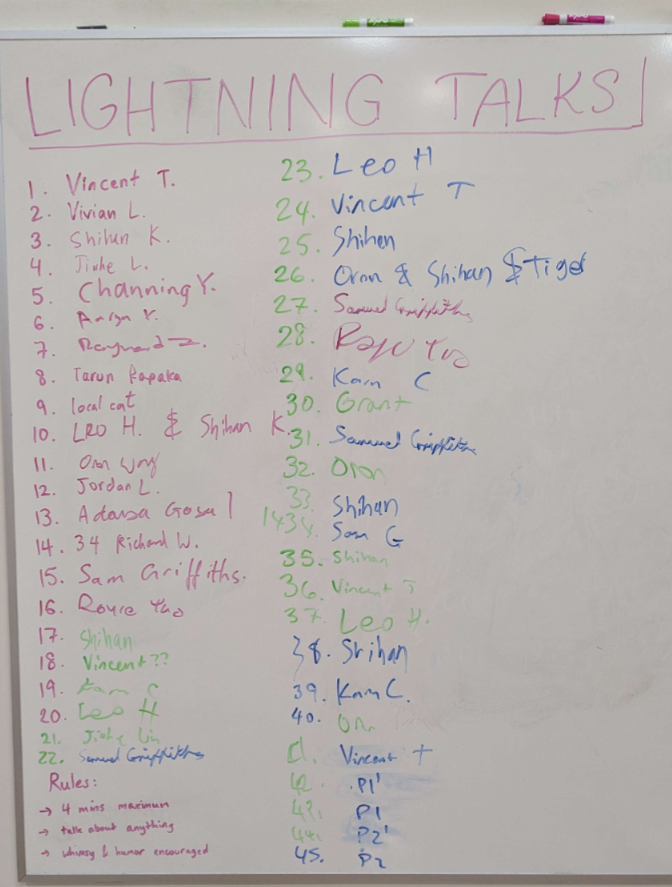 LIGHTNING TALKS
1. Vincent T.
2. Vivian L.
3. Shihan K.
4. Jinhe L.
5. Channing Y.
6.
7.
8. Tarun Rapaka
9. local cat
10. LEO H. & Shihan K.
11. Oron Wong
12. Jordan L.
13.
14. 34 Richard W.
15. Sam Griffiths.
16. Royce Yao
17. Shihan
18. Vincent??
19. Kam C
20. Leo H
21. Jinhe Lin
22. Samuel Griffiths
Rules:
→ 4 mins maximum
→ talk about anything
→ whimsy & humor encouraged
23. Leo H
24. Vincent T
25. Shihan
26. Oron & Shihan & Tiger
27. Samuel Griffiths
28. Royce Yao
29. Kam C
30. Grant
31. Samuel Griffiths
32. Oron
33. Shihan
1434. Sam G
35. Shihan
36. Vincent T
37. Leo H.
38. Shihan
39. Kam C.
40.
Vincent T
42. P1'
43. P1
44. P2'
45. P2